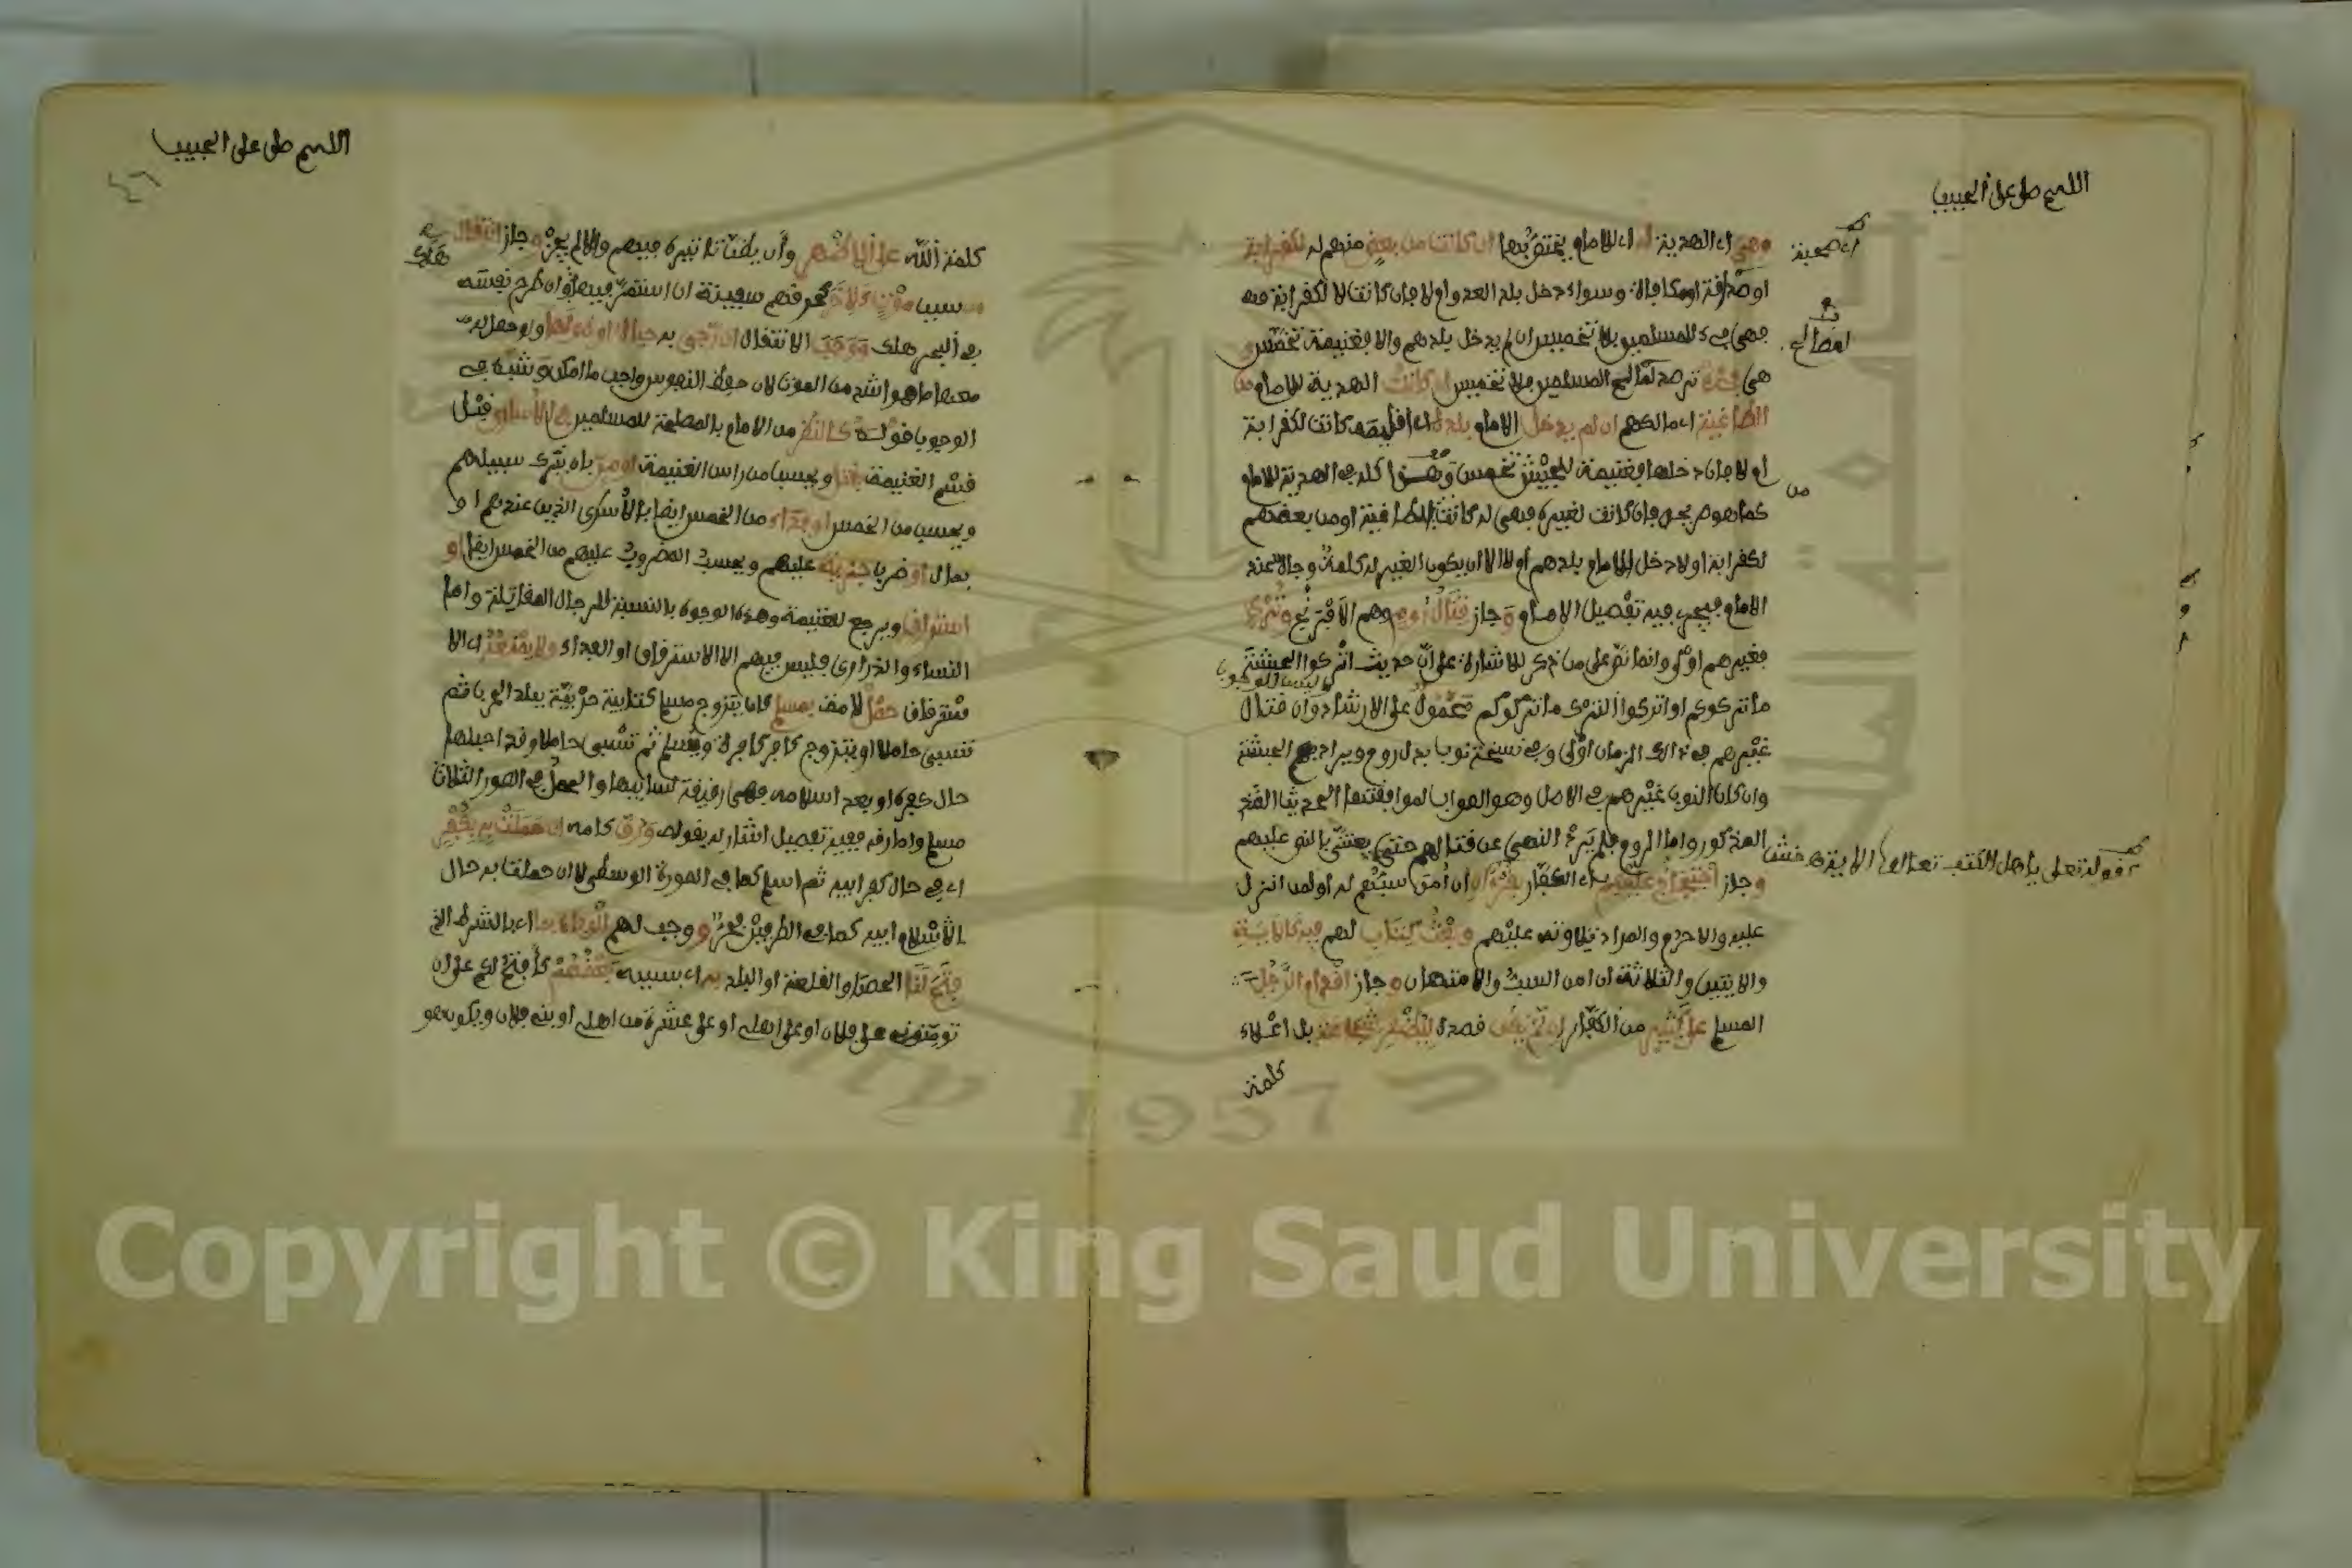 اللهم صل على الحبيب
وهي اي الهدية له اي للامام يختص بها ان كانت من بعض منهم له لكقرابة
او صداقة او مكافاة وسواء دخل بلد العدو ام لا فان كانت لا لكقرابة منه
فهي فيء للمسلمين بلا تخميس ان لم يدخل بلدهم والا فغنيمة تخمس و
هي فيء ترصد لمصالح المسلمين بلا تخميس ان كانت الهدية للامام من
الطاغية اي مالكهم ان لم يدخل الامام بلده اي اقليمه كانت لكقرابة
او لا فان دخلها فغنيمة للجيش تخمس وهذا كله في الهدية للامام
كما هو صريحه فان كانت لغيره فهي له كانت من الطاغية او من بعضهم
لكقرابة او لا دخل الامام بلدهم او لا الا ان يكون الغير له كلمة وجاه عند
الامام فيجري فيه تفصيل الامام وجاز قتال روم وهم الافرنج وترك
فغيرهم اولى وانما نص على من ذكر للاشارة على ان حديث اتركوا الحبشة
ما تركوكم او اتركوا الترك ما تركوكم محمول على الارشاد وان قتال
غيرهم في ذالك الزمان اولى وفي نسخة نوب بدل روم ويراد بهم الحبشة
وان كان النوب غيرهم في الاصل وهو الصواب لموافقتها الحديث
المذكور واما الروم فلم يرد النهي عن قتالهم حتى يعتني بالنص عليهم
وجاز احتجاج عليهم اي الكفار بقرءان ان امن سبهم له او لمن انزل
عليه والا حرم والمراد تلاوته عليهم وبعث كتاب لهم فيه كالاية
والايتين والثلاثة ان امن السب والامتهان وجاز اقدام الرجل
المسلم على كثير من الكفار ان لم يكن قصده ليظهر شجاعة بل اعلاء
كلمة
لمصالح
من
ليس للوجوب
كقوله تعلى ياهل الكتب تعالوا الاية
اللهم صل على الحبيب
٤٦
كلمة الله على الاظهر وان يظن تاثيره فيهم والا لم يجز وجاز انتقال
من سبب موت لاخر كحرقهم سفينة ان استمر فيها هلك وان طرح نفسه
في البحر هلك ووجب الانتقال ان رجي به حياة او طولها ولو حصل له
معها ما هو اشد من الموت لان حفظ النفوس واجب ما امكن وشبه في
الوجوب قوله كالنظر من الامام بالمصلحة للمسلمين في الاسارى قبل
قسم الغنيمة بقتل ويحسب من راس الغنيمة او من بان يترك سبيلهم
ويحسب من الخمس او فداء من الخمس ايضا بالاسرى الذين عندهم او
بمال او ضرب جزية عليهم ويحسب المضروب عليهم من الخمس ايضا او
استرقاق ويرجع للغنيمة وهذه الوجوه بالنسبة للرجال المقاتلة واما
النساء والذراري فليس فيهم الا الاسترقاق او الفداء ولا يمنعه اي الا
سترقاق حمل لامة بمسلم كان يتزوج مسلم كتابية حربية ببلد الحرب ثم
تسبى حاملا او يتزوج كافر كافرة ويسلم ثم تسبى حاملا وقد احبلها
حال كفره او بعد اسلامه فهي رقيقة لسابيها والحمل في الصور الثلاث
مسلم واما رقه ففيه تفصيل اشار له بقوله ورق كامه ان حملت به بكفر
اي في حال كفر ابيه ثم اسلم كما في الصورة الوسطى لا ان حملت به حال
الاسلام ابيه كما في الطرفين فحر ووجب لهم الوفاء بما اي بالشرط الذي
فتح لنا الحصن او القلعة او البلد به اي بسببه بعضهم كافتح لكم على ان
تومنوني على فلان او على اهلي او على عشرة من اهلي او بني فلان ويكون هو